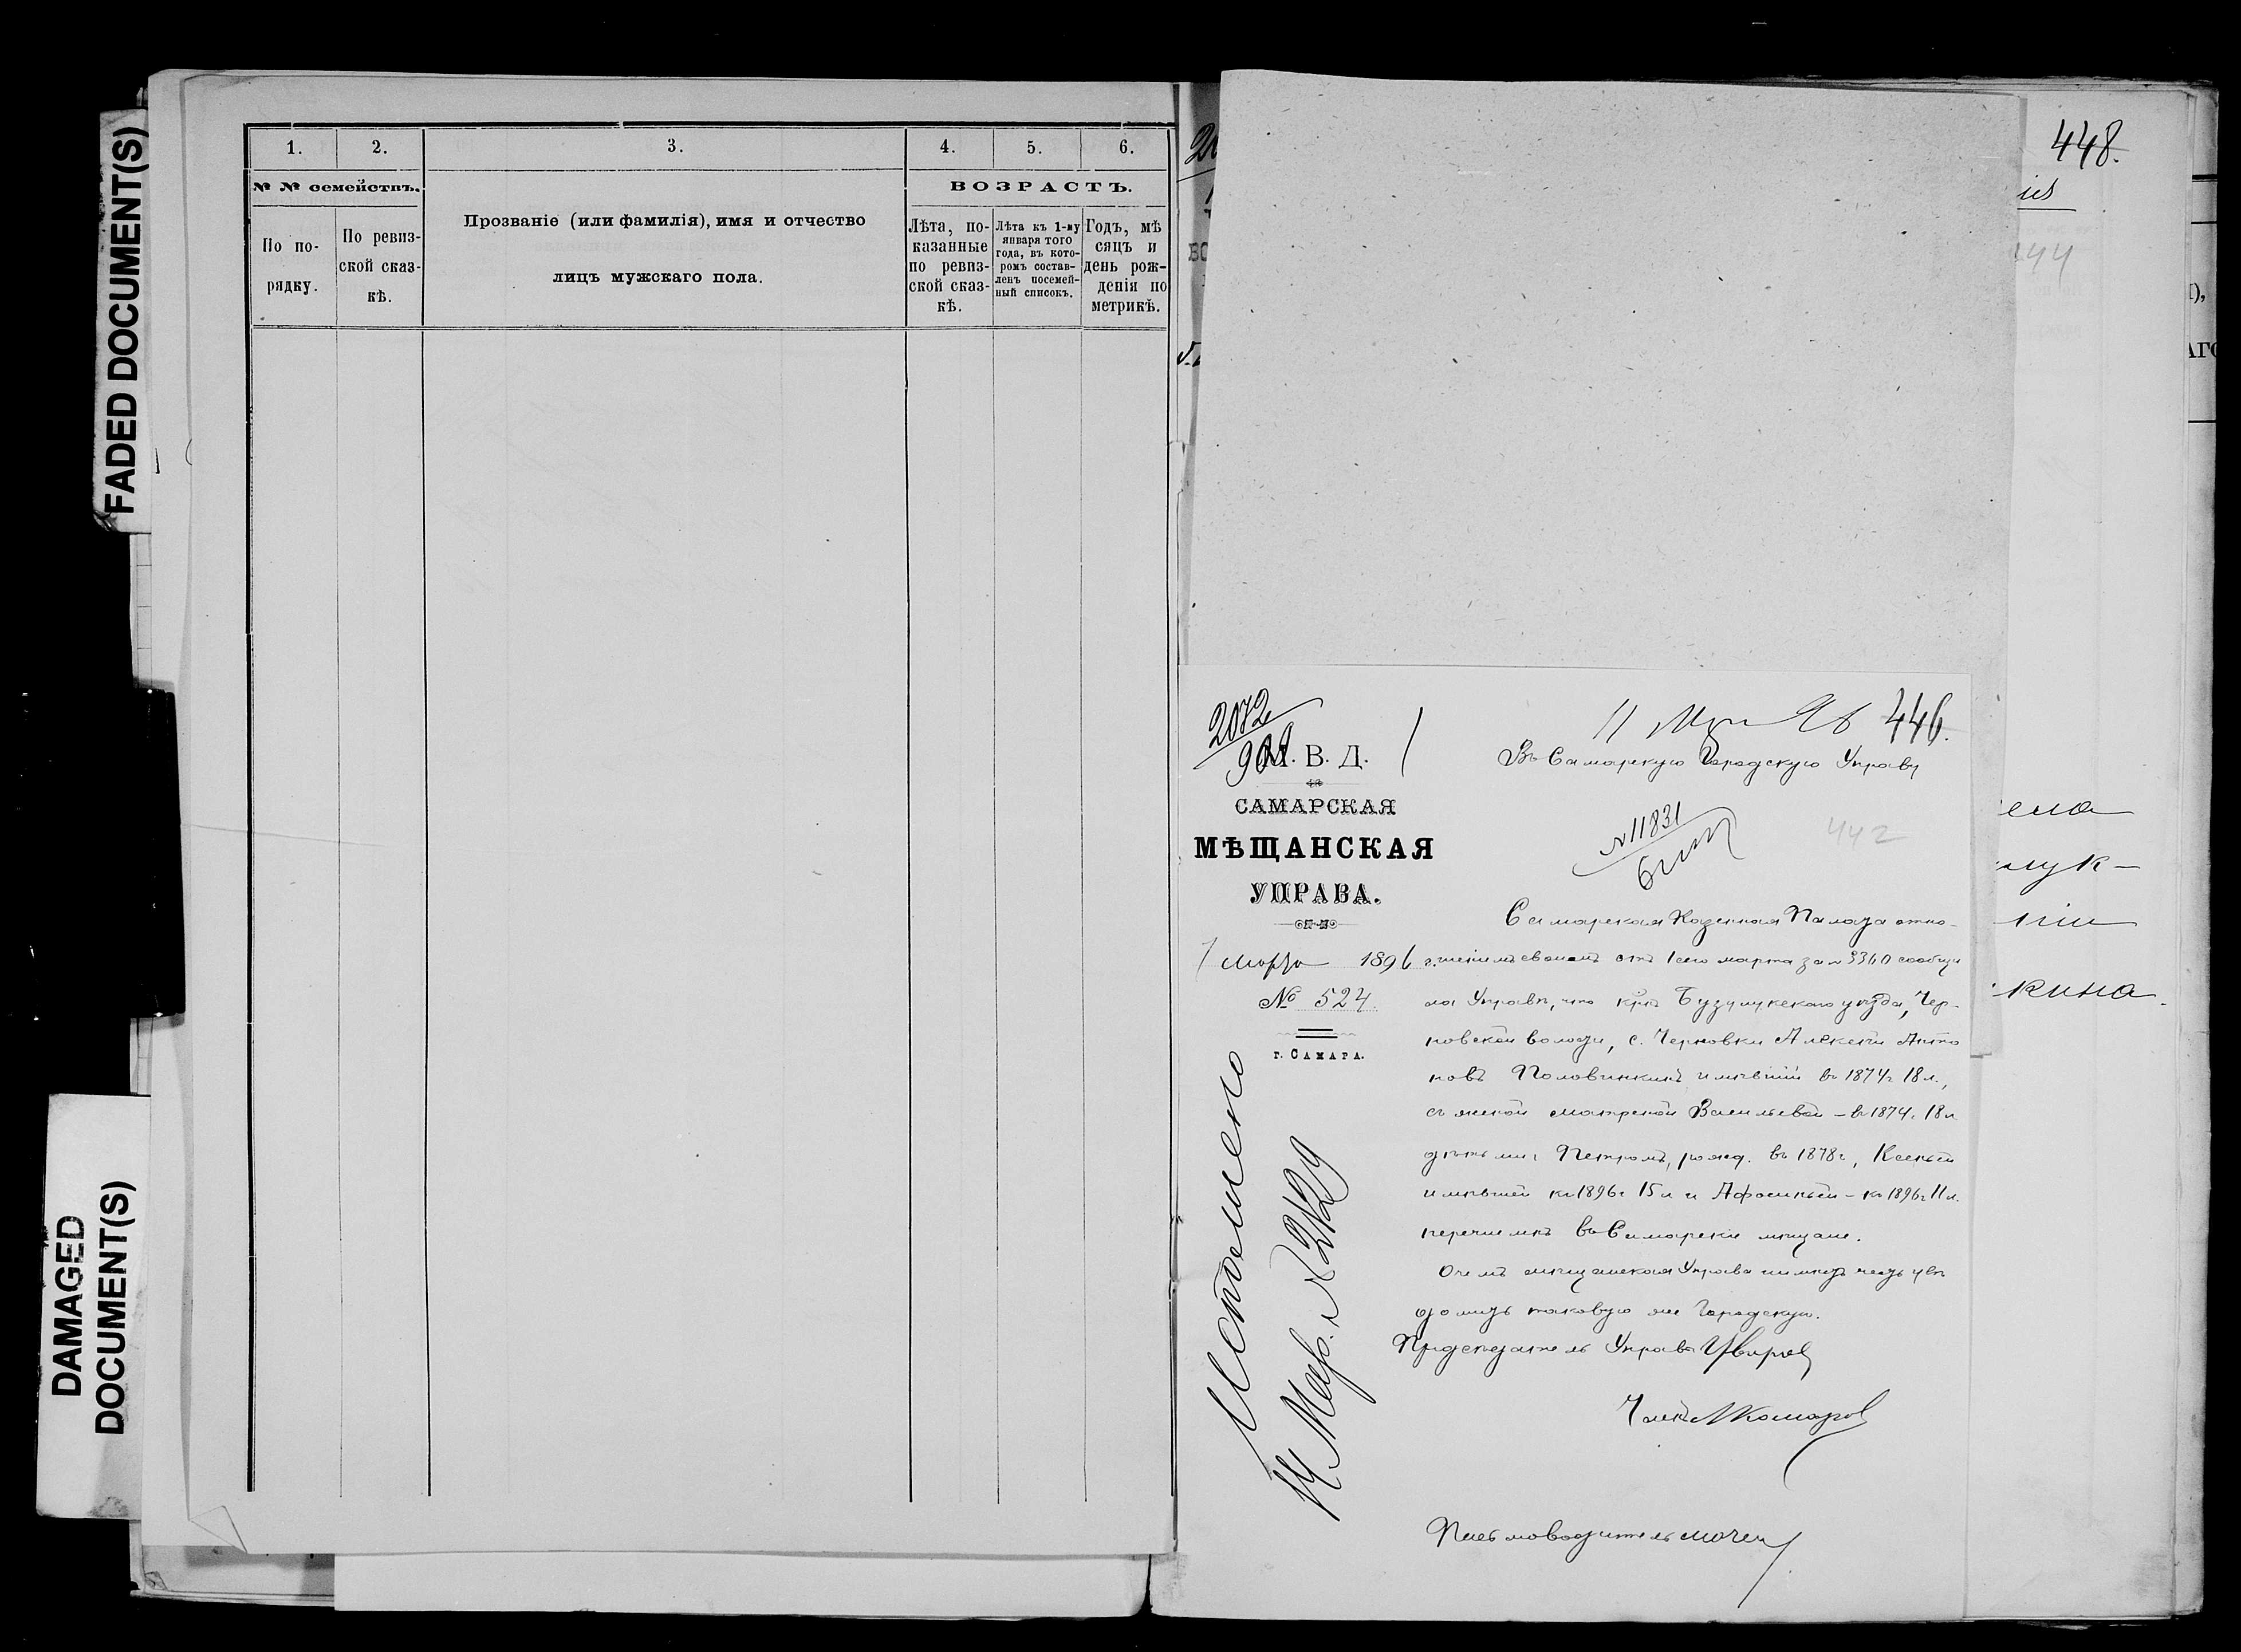 FADED DOCUMENT(S)
DAMAGED
DOCUMENT(S)
1.
2.
3.
4.
5.
6.
№ № семействъ.
ВОЗРАСТЪ.
По по-
рядку.
По ревиз-
ской сказ-
кѣ.
Прозваніе (или фамилія), имя и отчество
лицъ мужскаго пола.
Лѣта, по-
казанные
по ревиз-
ской сказ-
кѣ.
Лѣта къ 1-му
января того
года, въ кото-
ромъ состав-
ленъ посемей-
ный списокъ.
Годъ, мѣ
сяцъ и
день рож-
денія по
метрикѣ.
448.
446.
2072
В. Д.
САМАРСКАЯ
МѢЩАНСКАЯ
УПРАВА.
7 Марта 1896 г.
№ 524
г. САМАРА.
11 Мр 96
Въ Самарскую Городскую Управу
№ 11831
442
Самарская Казенная Палата отно-
шеніемъ своимъ отъ 1 сего марта за № 3360 сообщи
ла Управѣ, что кр̃нъ Бузулукскаго уѣзда, Чер-
новской волости, с. Черновки Алексѣй Анто
новъ Половинкинъ имѣвшій въ 1874 г 18 л.,
съ женой Матреной Васильевой – въ 1874 г. 18 л
дѣтьми: Петромъ, рожд. въ 1878 г, Ксеніей
имѣвшей къ 1896 г 15 л и Афосиніей – къ 1896 г 11 л.
перечисленъ въ Самарскіе мѣщане.
О чемъ мѣщанская Управа имѣетъ честь увѣ
домить таковую же Городскую.
Предсѣдатель Управы
Членъ Комаров
Письмоводитель
Исполнено
14 Мар. № 2129